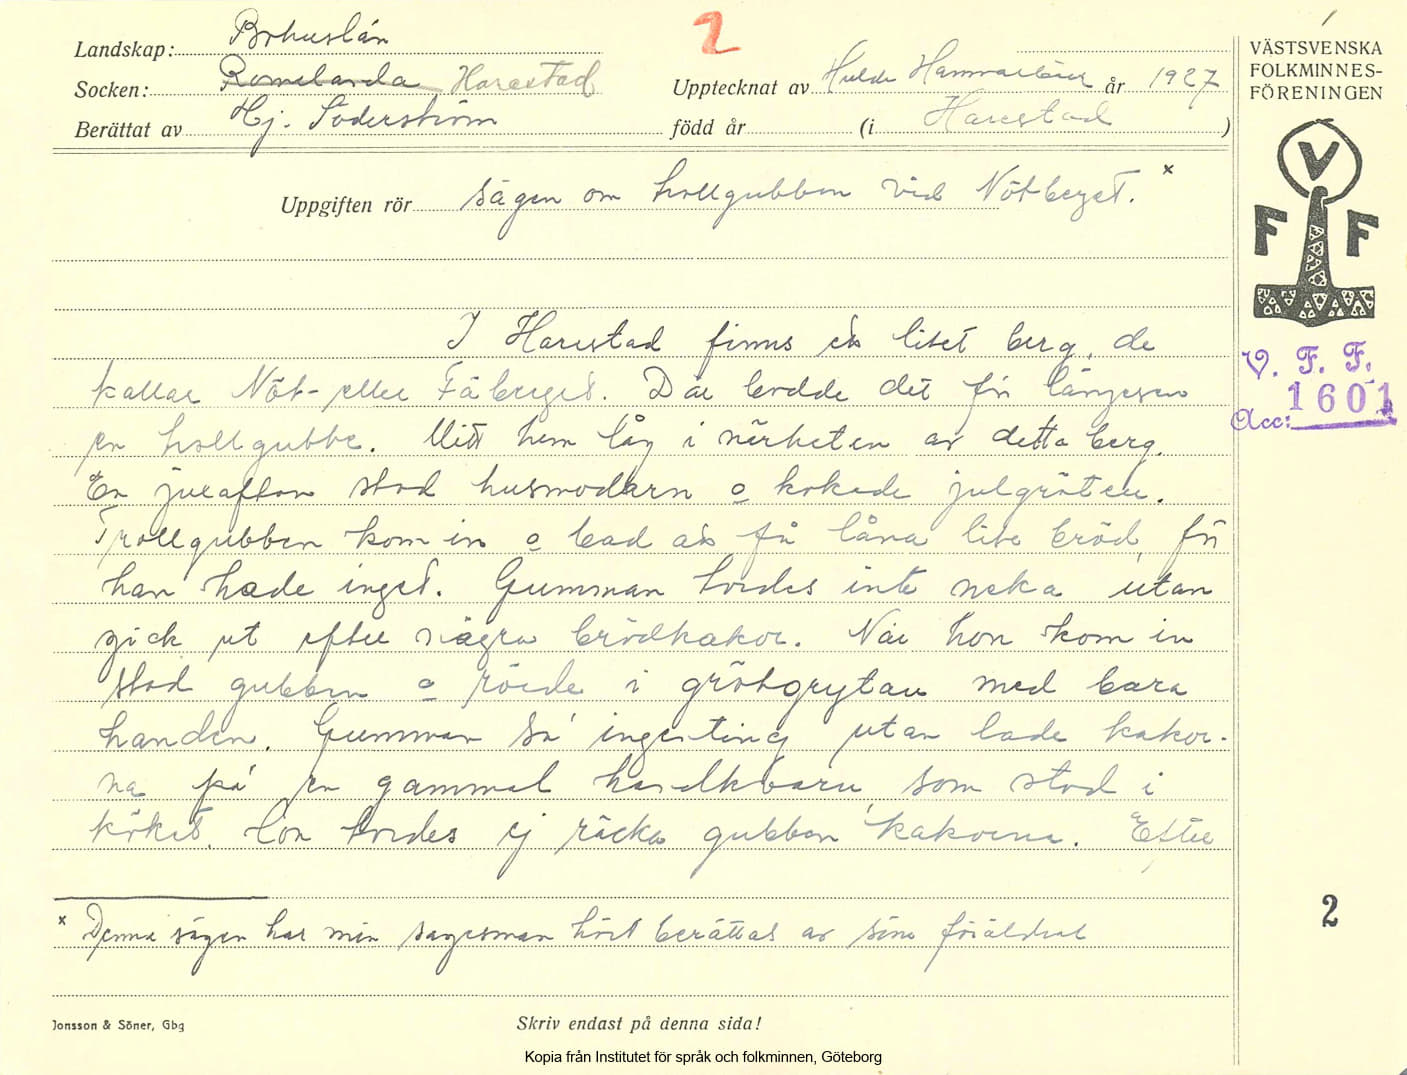 Landskap: Bohuslän
2
Socken: Romelanda Harestad
Upptecknat av Hulda Hammarbäck år 1927
Berättat av Hj. Söderström
född år (i Harestad )
VÄSTSVENSKA
FOLKMINNES-
FÖRENINGEN
V
F F
V. F. F.
Acc: 1601
Uppgiften rör sägen om trollgubben vid Nötberget. x
I Harestad finns ett litet berg, de
kallar Nöt- eller Fäberget. Där bodde det för längesen
en trollgubbe. Mitt hem låg i närheten av detta berg.
En julafton stod husmodern o kokade julgröten.
Trollgubben kom in o bad att få låna lite bröd, för
han hade inget. Gumman tordes inte neka utan
gick ut efter några brödkakor. När hon kom in
stod gubben o rörde i grötgrytan med bara
handen. Gumman sa' ingenting utan lade kakor-
na på en gammal handkbaru, som stod i
köket. Hon tordes ej räcka gubben kakorna. Efter
x Denna sägen har min sagesman hört berättas av sina föräldrar
2
Jonsson & Söner, Gbg
Skriv endast på denna sida!
Kopia från Institutet för språk och folkminnen, Göteborg